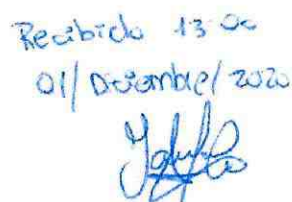 Recibido 13:00
01/Diciembre/2020